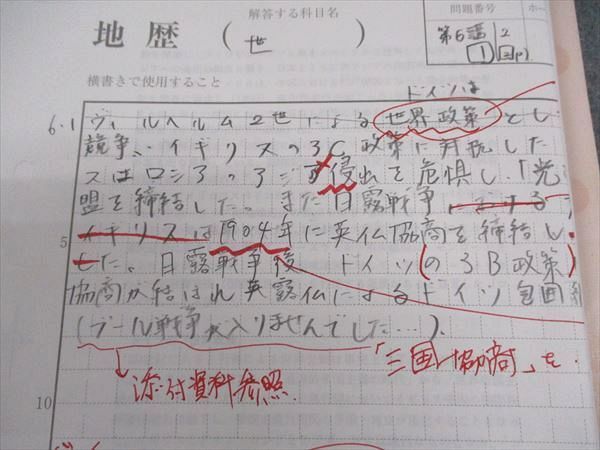 解答する科目名
地歴(世)
問題番号
第6講 2
横書きで使用すること
ドイツは
6.1 ヴィルヘルム2世による世界政策とし
競争、イギリスの3C政策に対抗した
スはロシアの 侵出を危惧し、「光
盟を締結した。また日露戦争
5 イギリスは1904年に英仏協商を締結し
した。日露戦争後、ドイツ(の3B政策)
協商が結ばれ英露仏によるドイツ包囲
(ブール戦争が入りませんでした…).
「三国協商」を
添付資料参照.
10